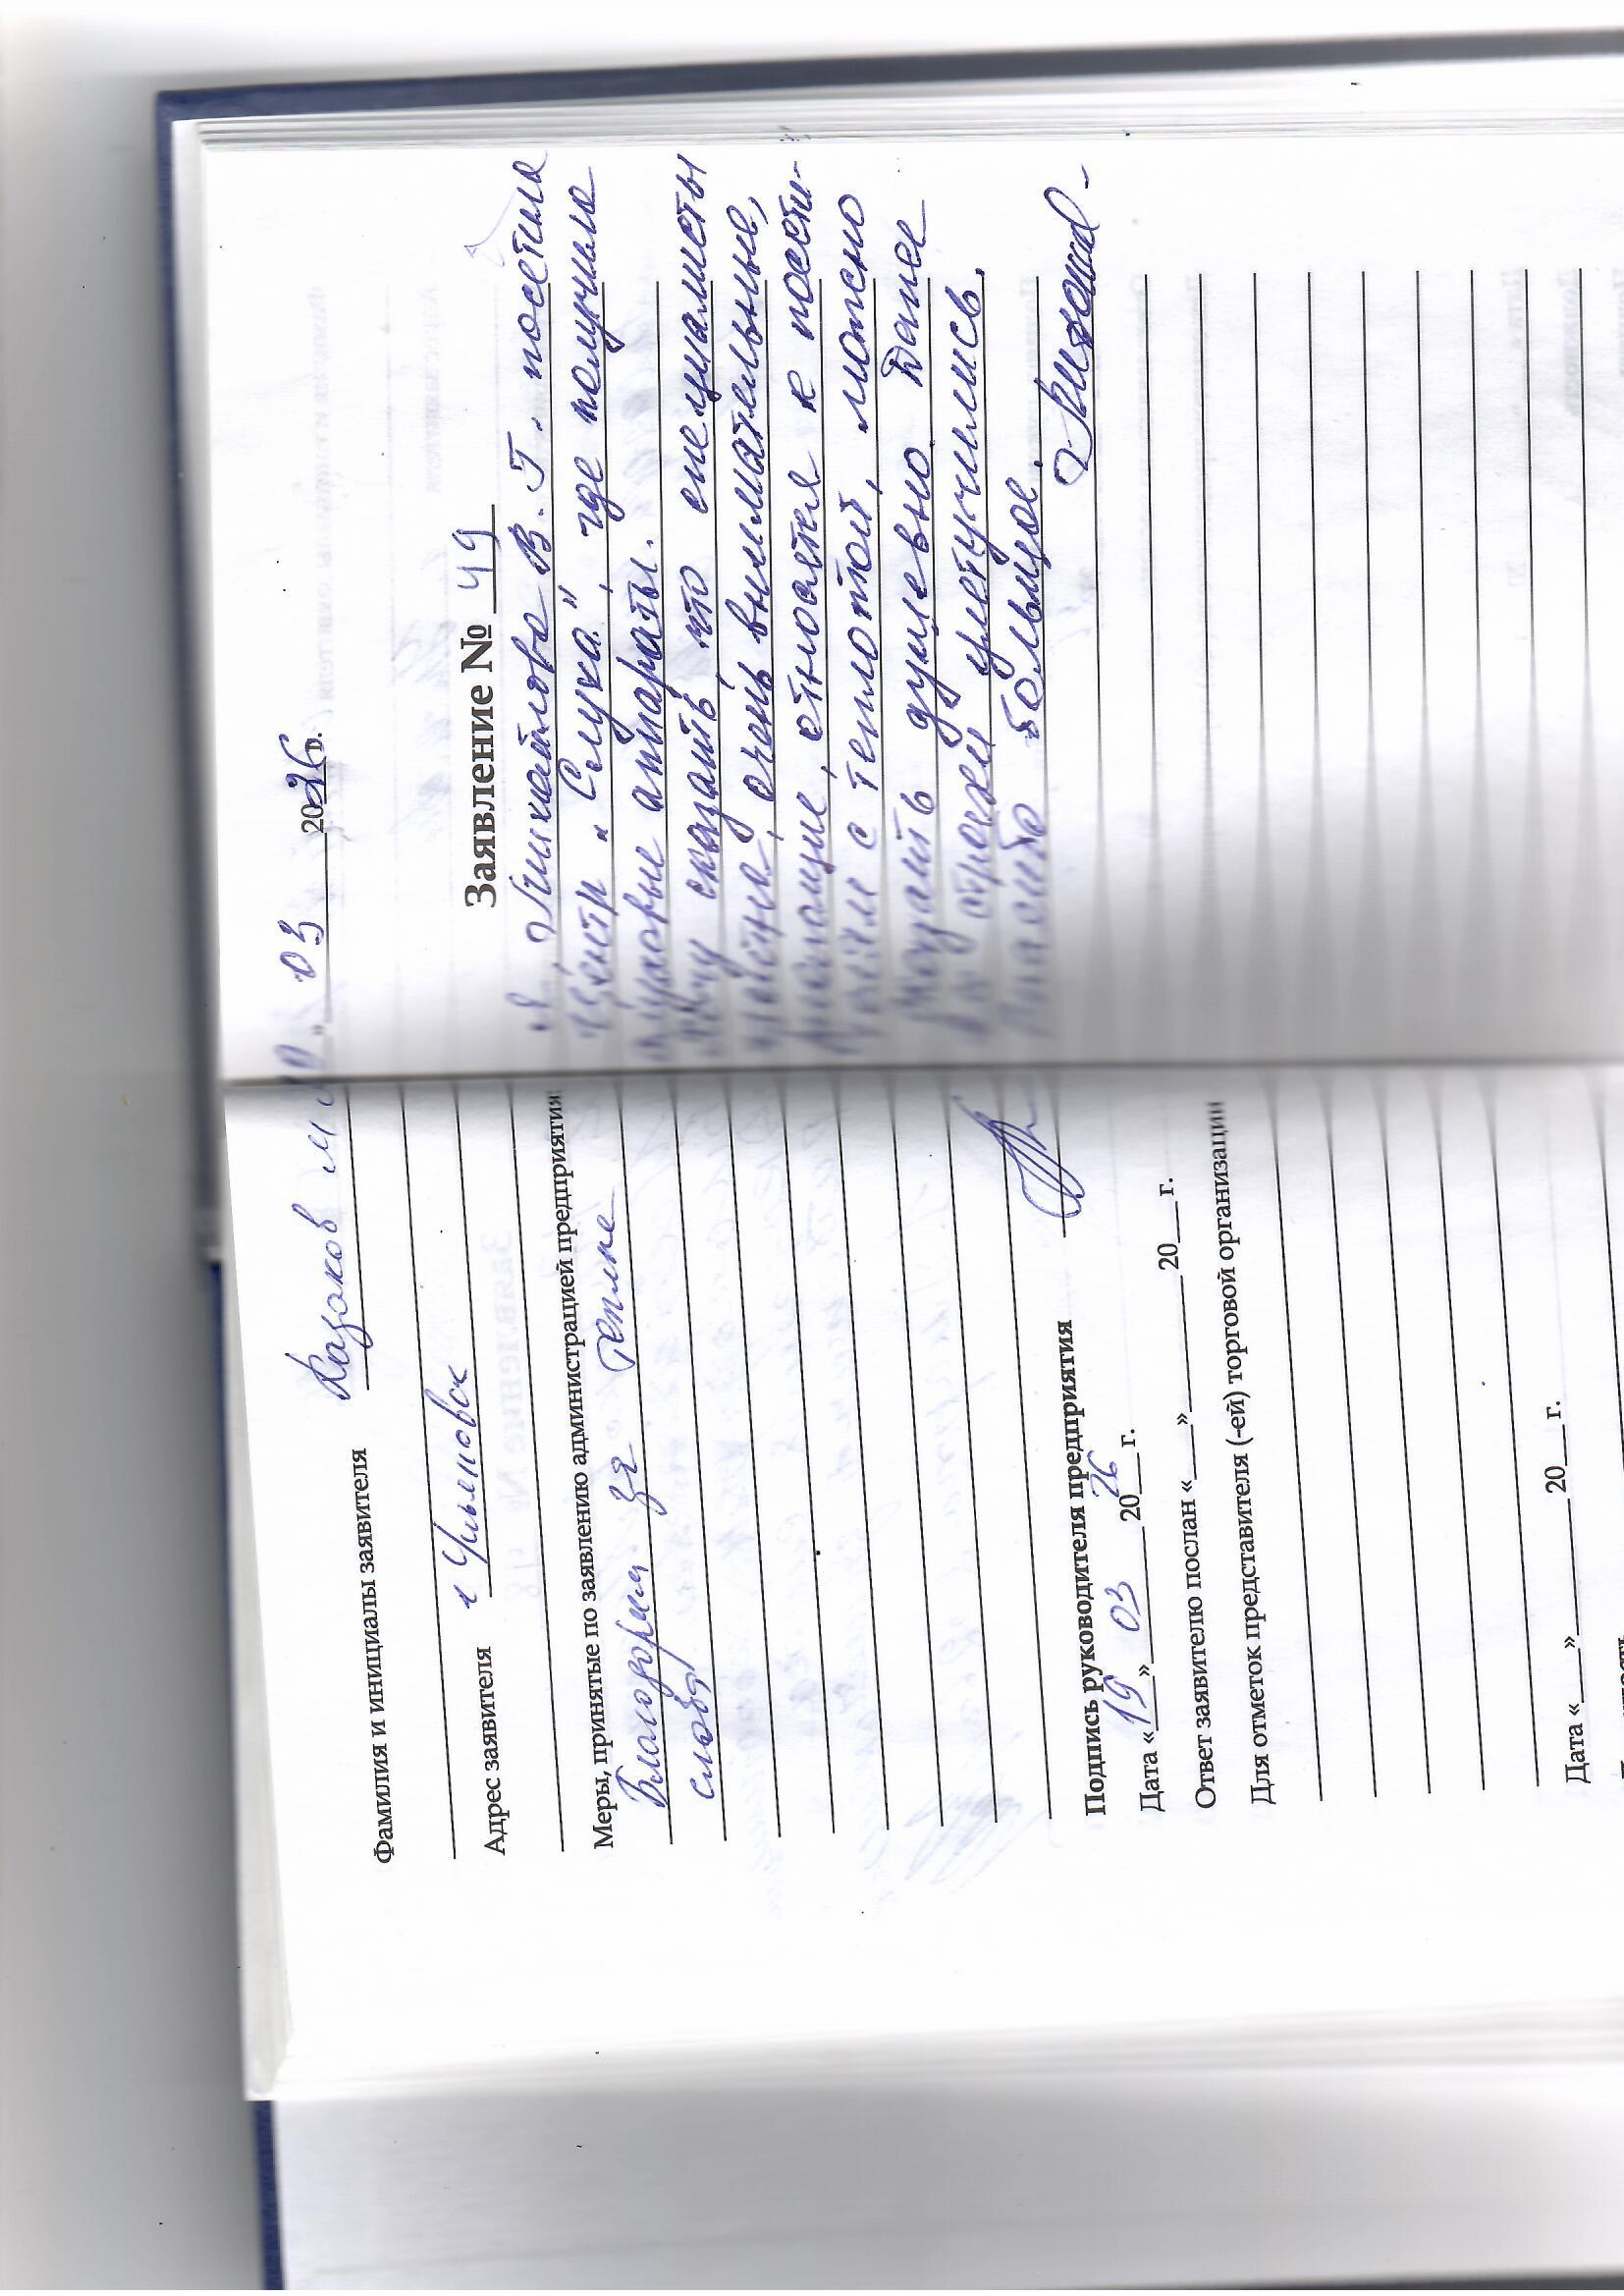 Фамилия и инициалы заявителя Казаков
Адрес заявителя г Ульяновск
Меры, принятые по заявлению администрацией предприятия
Благодарим за теплые
слова
Подпись руководителя предприятия
Дата «19» 03 2026 г.
Ответ заявителю послан «___»________20___г.
Для отметок представителя (-ей) торговой организации
Дата «___»________20___г.
» 03 2026 г.
Заявление № 49
Я, Михайлова В. Г. посетила
центр „Слуха", где получила
слуховые аппараты.
Хочу сказать, что специалисты
центра, очень внимательные,
относятся к посети-
телям с теплотой, можно
сказать душевно. Даже
страхи улетучились.
Спасибо большое.